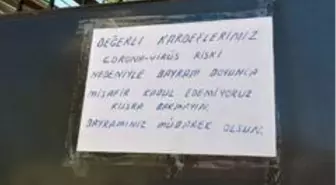 DEĞERLİ KARDEŞLERİMİZ
CORONA-VİRÜS RİSKİ
NEDENİYLE BAYRAM BOYUNCA
MİSAFİR KABUL EDEMİYORUZ
KUSRA BAKMAYIN.
BAYRAMINIZ MÜBAREK OLSUN.